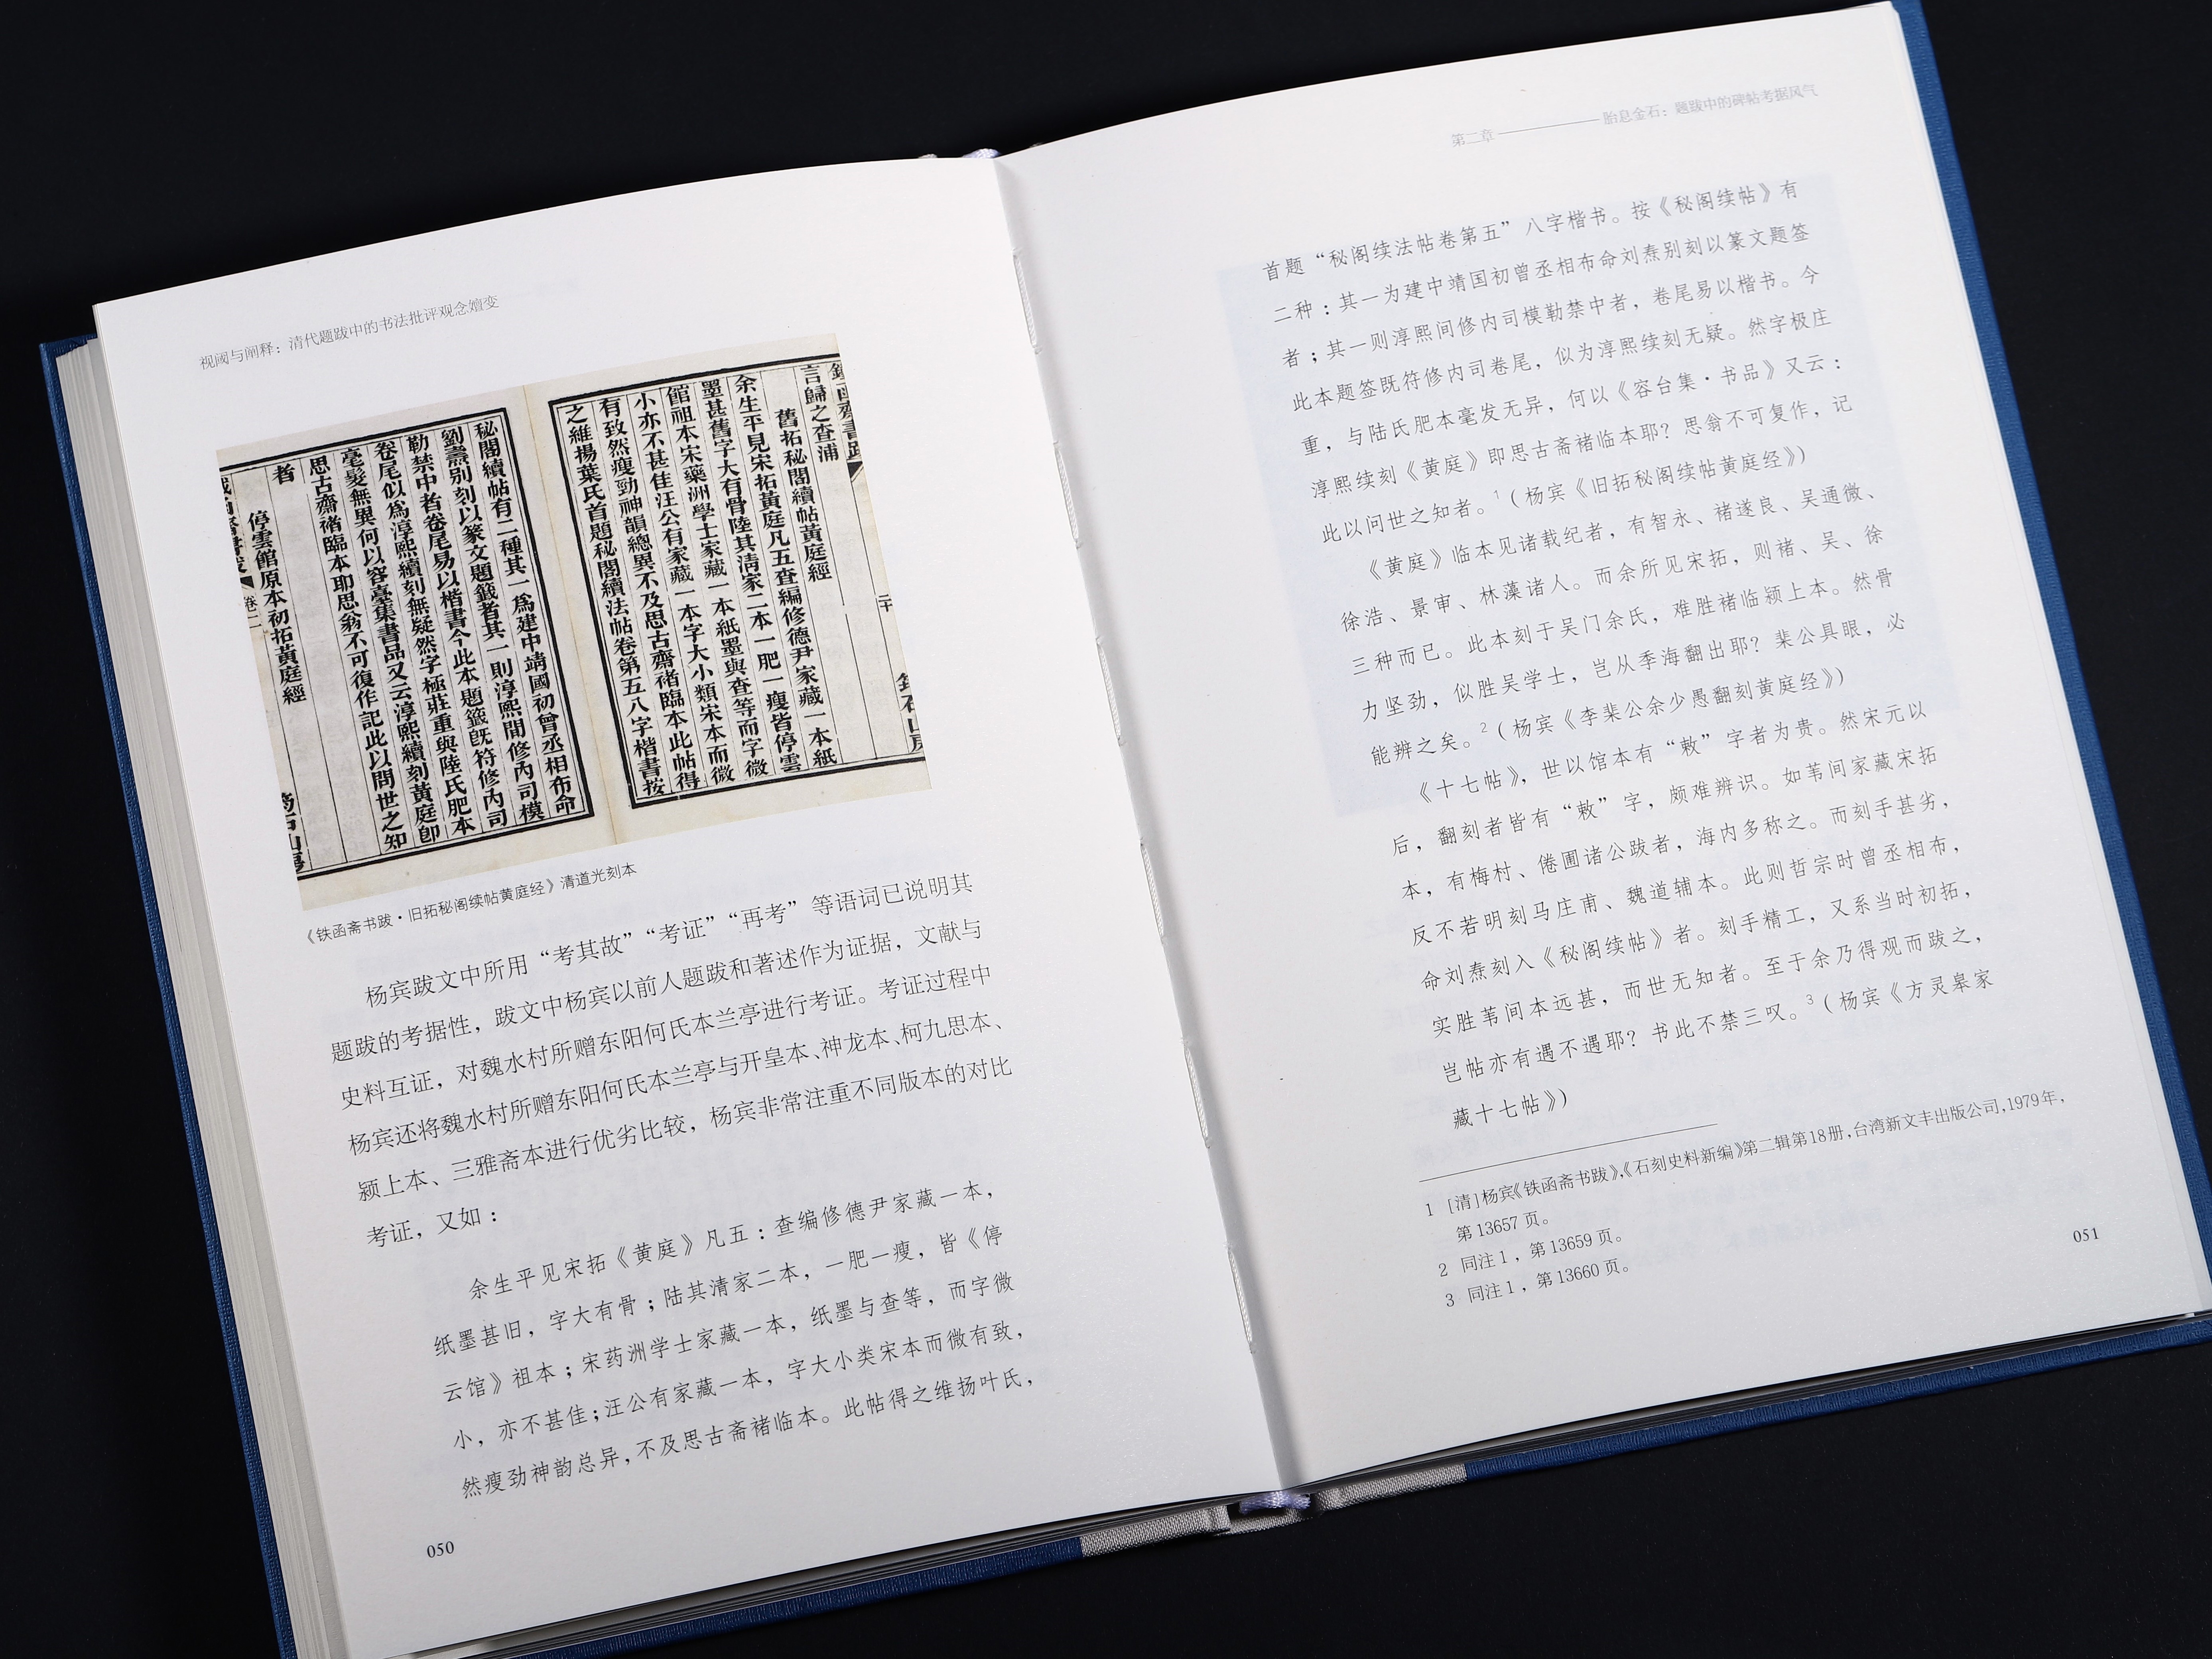 视阈与阐释：清代题跋中的书法批评观念嬗变
言歸之查浦
舊拓秘閣續帖黃庭經
余生平見宋拓黃庭凡五查編修德尹家藏一本紙
墨甚舊字大有骨陸其清家二本一肥一瘦皆停雲
館祖本宋藥洲學士家藏一本紙墨與查等而字微
小亦不甚佳汪公有家藏一本字大小類宋本而微
有致然瘦勁神韻總異不及思古齋褚臨本此帖得
之維揚葉氏首題秘閣續法帖卷第五八字楷書按
秘閣續帖有二種其一爲建中靖國初曾丞相布命
劉燾别刻以篆文題籤者其一則淳熙間修內司模
勒禁中者卷尾易以楷書今此本題籤旣符修內司
卷尾似爲淳熙續刻無疑然字極莊重與陸氏肥本
毫髮無異何以容臺集書品又云淳熙續刻黃庭卽
思古齋褚臨本耶思翁不可復作記此以問世之知
者
停雲館原本初拓黃庭經
卷二
《铁函斋书跋·旧拓秘阁续帖黄庭经》清道光刻本
杨宾跋文中所用“考其故”“考证”“再考”等语词已说明其
题跋的考据性，跋文中杨宾以前人题跋和著述作为证据，文献与
史料互证，对魏水村所赠东阳何氏本兰亭进行考证。考证过程中
杨宾还将魏水村所赠东阳何氏本兰亭与开皇本、神龙本、柯九思本、
颍上本、三雅斋本进行优劣比较，杨宾非常注重不同版本的对比
考证，又如：
余生平见宋拓《黄庭》凡五：查编修德尹家藏一本，
纸墨甚旧，字大有骨；陆其清家二本，一肥一瘦，皆《停
云馆》祖本；宋药洲学士家藏一本，纸墨与查等，而字微
小，亦不甚佳；汪公有家藏一本，字大小类宋本而微有致，
然瘦劲神韵总异，不及思古斋褚临本。此帖得之维扬叶氏，
050
第二章————胎息金石：题跋中的碑帖考据风气
首题“秘阁续法帖卷第五”八字楷书。按《秘阁续帖》有
二种：其一为建中靖国初曾丞相布命刘焘别刻以篆文题签
者；其一则淳熙间修内司模勒禁中者，卷尾易以楷书。今
此本题签既符修内司卷尾，似为淳熙续刻无疑。然字极庄
重，与陆氏肥本毫发无异，何以《容台集·书品》又云：
淳熙续刻《黄庭》即思古斋褚临本耶？思翁不可复作，记
此以问世之知者。1（杨宾《旧拓秘阁续帖黄庭经》）
《黄庭》临本见诸载纪者，有智永、褚遂良、吴通微、
徐浩、景审、林藻诸人。而余所见宋拓，则褚、吴、徐
三种而已。此本刻于吴门余氏，难胜褚临颍上本。然骨
力坚劲，似胜吴学士，岂从季海翻出耶？棐公具眼，必
能辨之矣。2（杨宾《李棐公余少愚翻刻黄庭经》）
《十七帖》，世以馆本有“敕”字者为贵。然宋元以
后，翻刻者皆有“敕”字，颇难辨识。如苇间家藏宋拓
本，有梅村、倦圃诸公跋者，海内多称之。而刻手甚劣，
反不若明刻马庄甫、魏道辅本。此则哲宗时曾丞相布，
命刘焘刻入《秘阁续帖》者。刻手精工，又系当时初拓，
实胜苇间本远甚，而世无知者。至于余乃得观而跋之，
岂帖亦有遇不遇耶？书此不禁三叹。3（杨宾《方灵皋家
藏十七帖》）
1 [清]杨宾《铁函斋书跋》，《石刻史料新编》第二辑第18册，台湾新文丰出版公司，1979年，
第13657页。
2 同注1，第13659页。
3 同注1，第13660页。
051